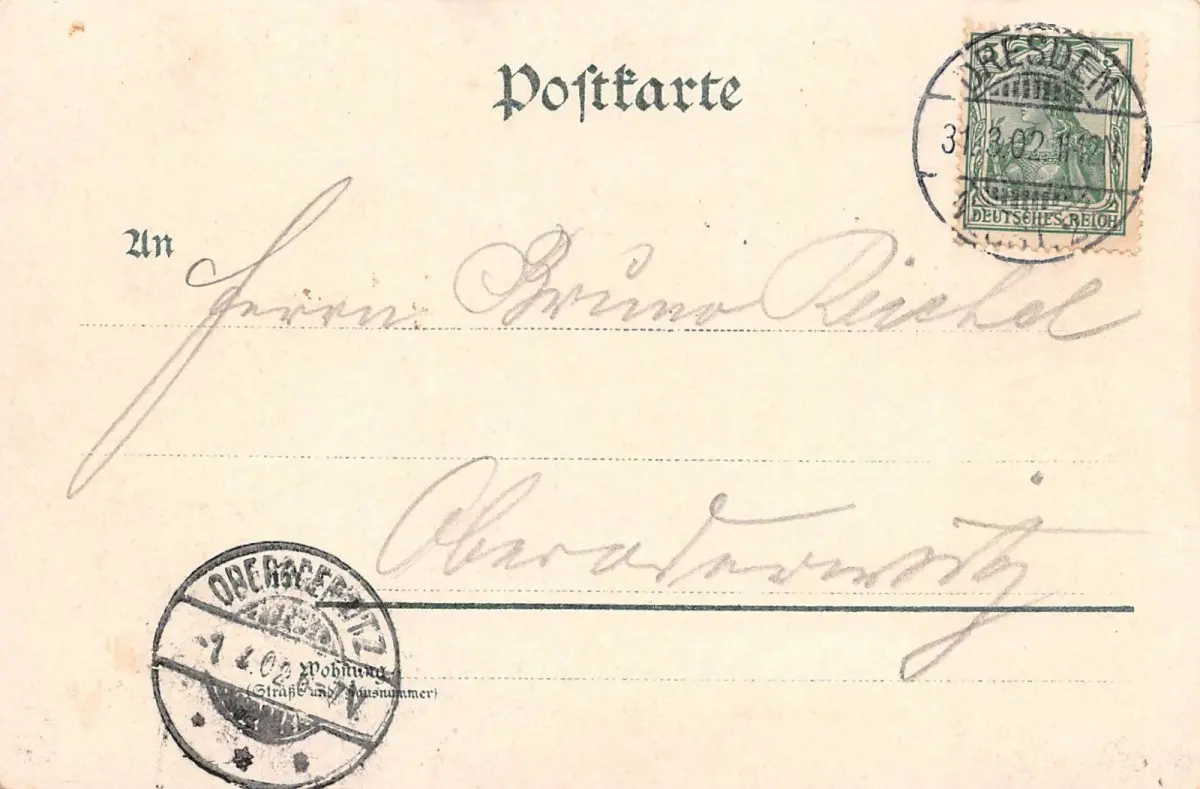 Postkarte
5
DRESDEN
31.3.02.11-12N
DEUTSCHES REICH
An
Herrn Bruno Reichel
Oberoderwitz
OBERODERWITZ
-1.4.02.6-7N
Wohnung
(Straße und Hausnummer)